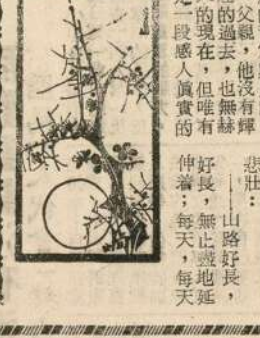 父親，他沒有輝
的過去，也無赫
的現在，但唯有
一段感人真實的
悲壯：
——山路好長，
好長，無止盡地延
伸着；每天，每天